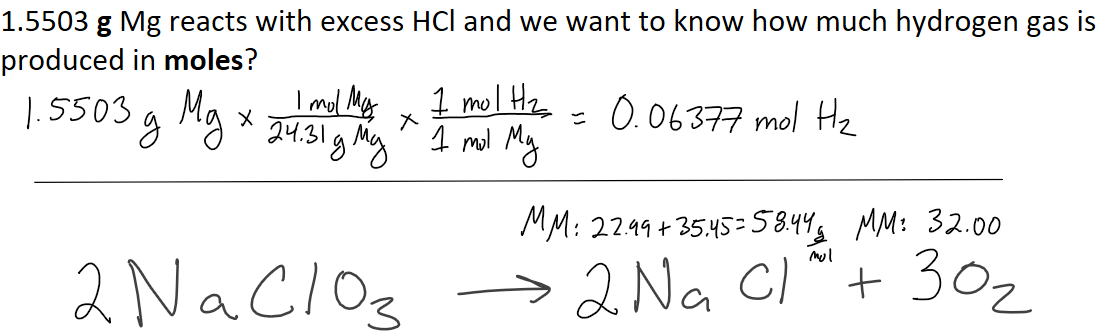 1.5503 g Mg reacts with excess HCl and we want to know how much hydrogen gas is
produced in moles?
1.5503 g Mg × 1 mol Mg / 24.31 g Mg × 1 mol H₂ / 1 mol Mg = 0.06377 mol H₂
MM: 22.99 + 35.45 = 58.44 g/mol MM: 32.00
2 NaClO₃ → 2 NaCl + 3O₂